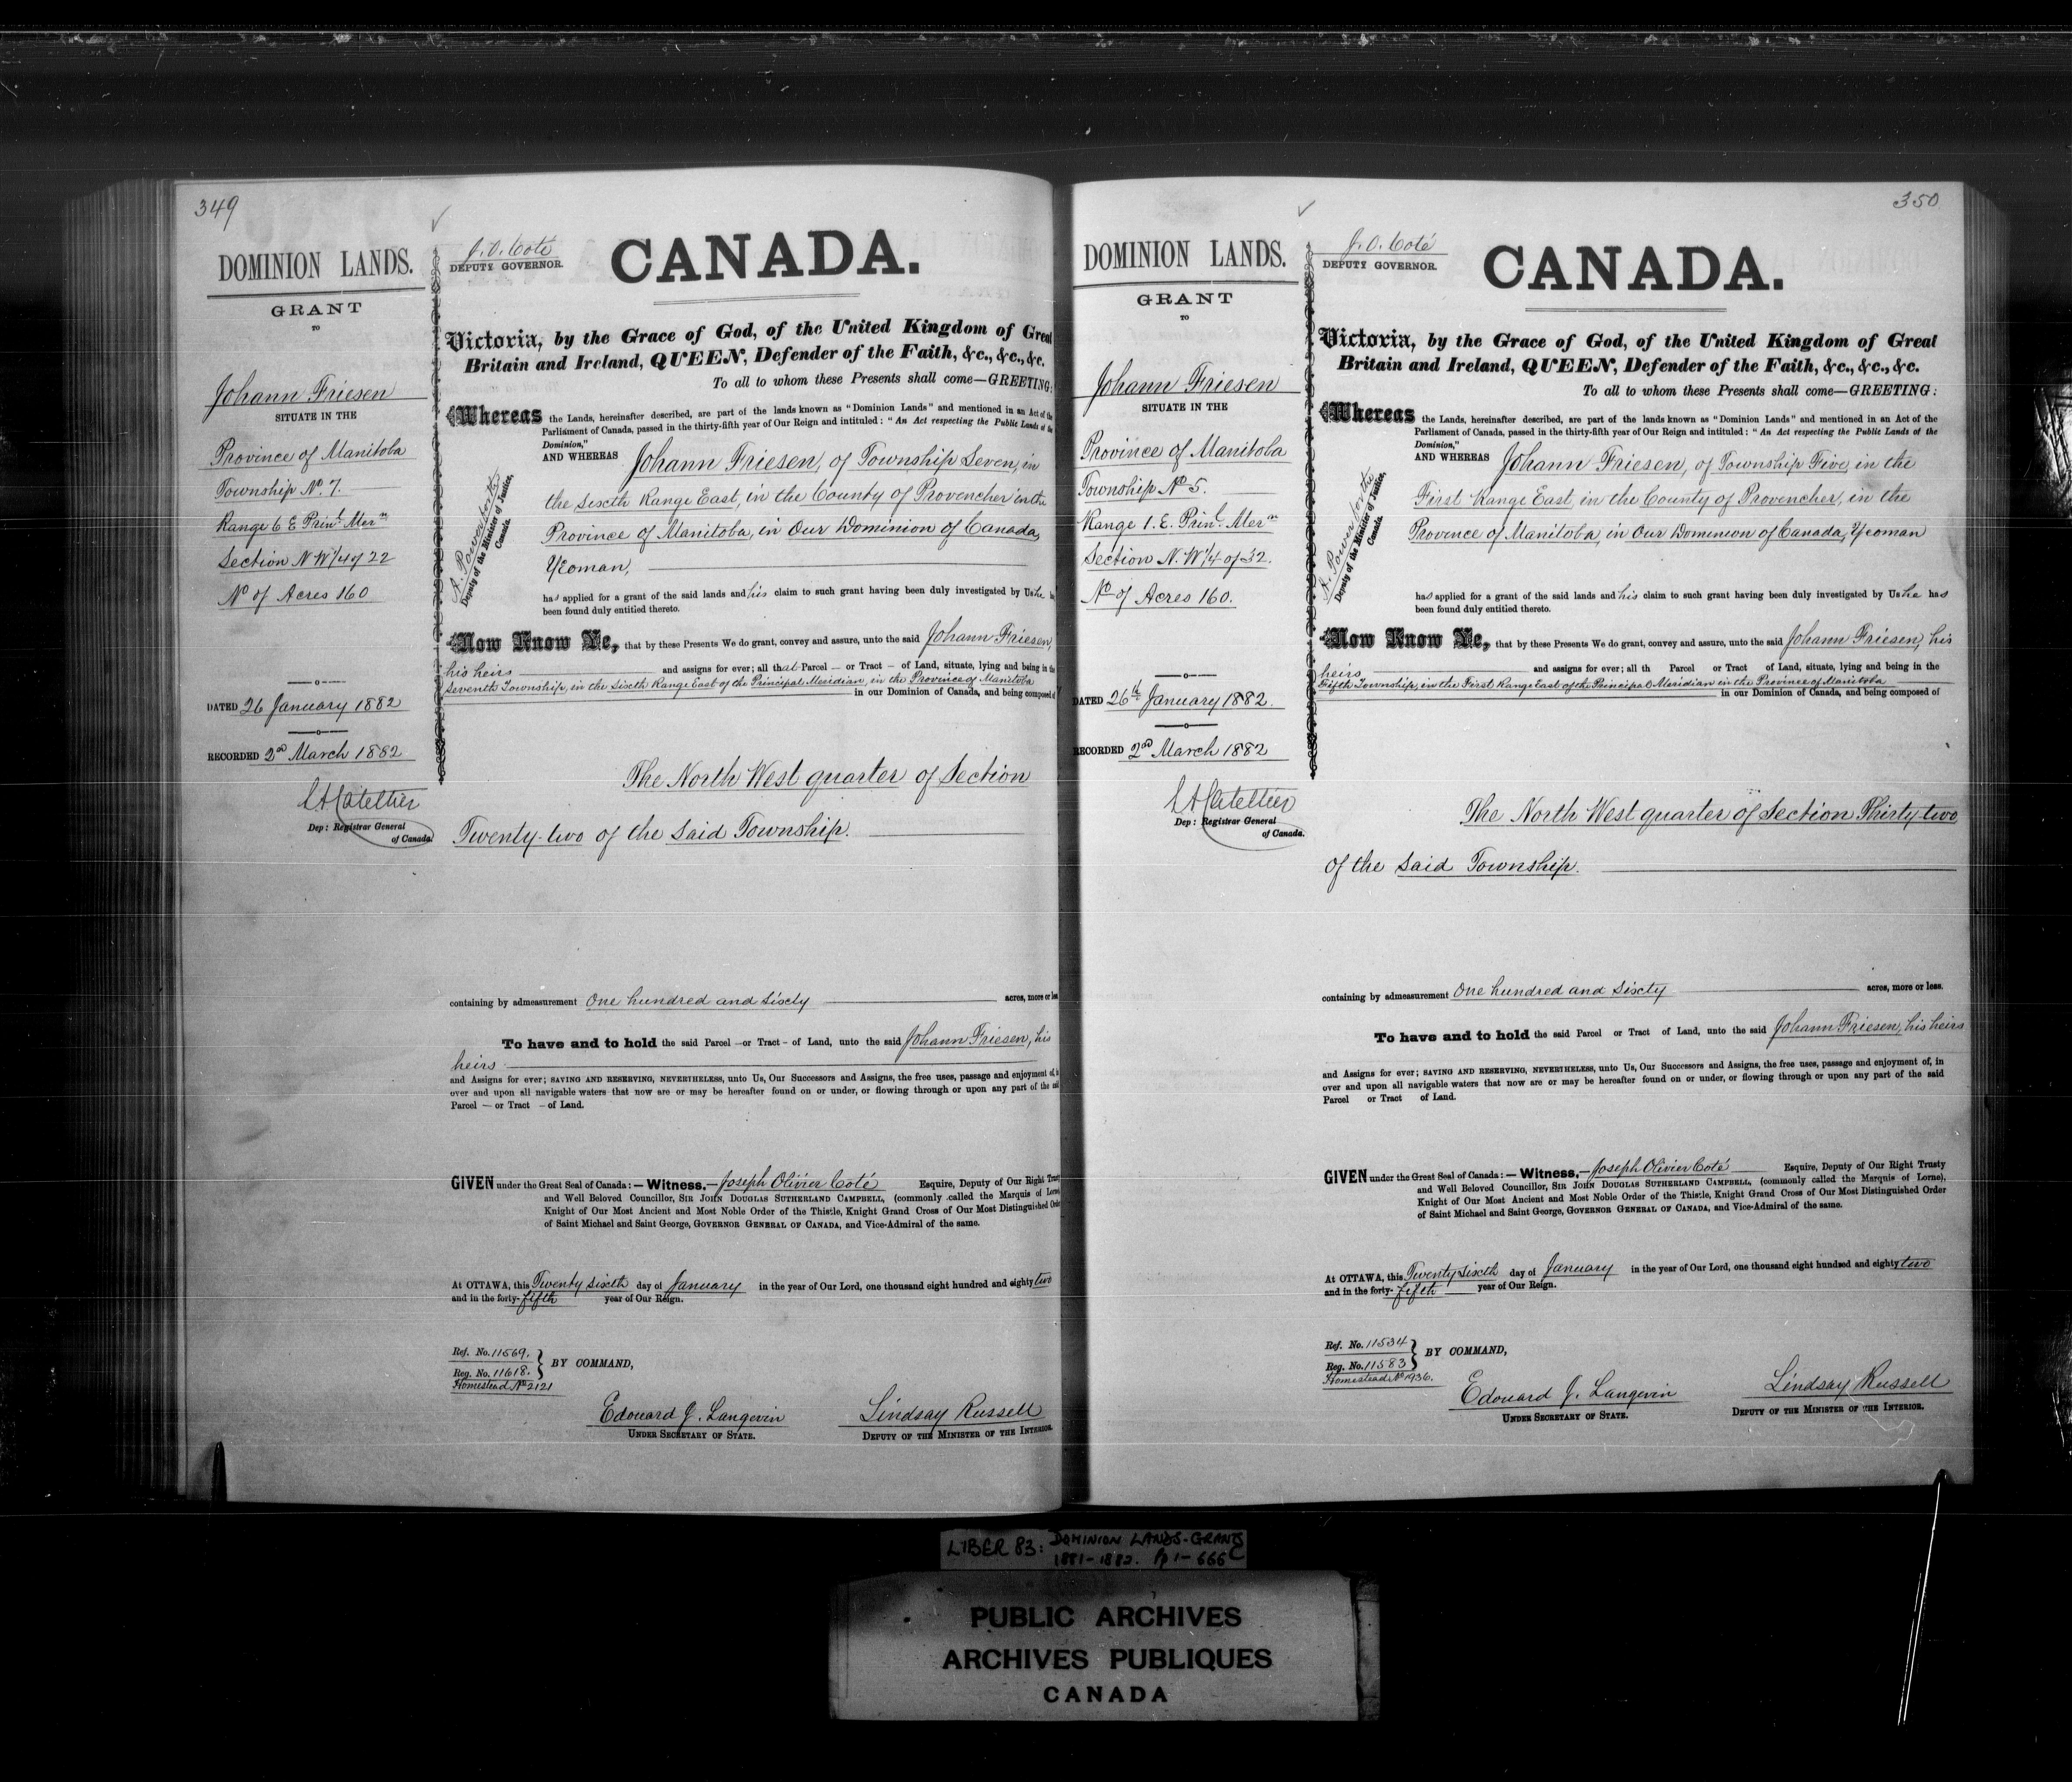 349
DOMINION LANDS.
GRANT
TO
Johann Friesen
SITUATE IN THE
Province of Manitoba
Township No. 7.
Range 6 E Prinl. Mern
Section N W 1/4 of 22
No of Acres 160
DATED 26 January 1882
RECORDED 2nd March 1882
Dep: Registrar General
of Canada.
J. O. Coté
DEPUTY GOVERNOR.
CANADA.
Victoria, by the Grace of God, of the United Kingdom of Great
Britain and Ireland, QUEEN, Defender of the Faith, &c., &c., &c.
To all to whom these Presents shall come—GREETING:
Whereas the Lands, hereinafter described, are part of the lands known as "Dominion Lands" and mentioned in an Act of the
Parliament of Canada, passed in the thirty-fifth year of Our Reign and intituled: "An Act respecting the Public Lands of the
Dominion,"
AND WHEREAS Johann Friesen, of Township Seven, in
the Sixth Range East, in the County of Provencher in the
Province of Manitoba, in Our Dominion of Canada,
Yeoman,
A. Power
Deputy of the Minister of Justice,
Canada.
has applied for a grant of the said lands and his claim to such grant having been duly investigated by Us he
been found duly entitled thereto.
Now Know Ye, that by these Presents We do grant, convey and assure, unto the said Johann Friesen,
his heirs and assigns for ever; all that Parcel — or Tract — of Land, situate, lying and being in the
Seventh Township, in the Sixth Range East of the Principal Meridian, in the Province of Manitoba
in our Dominion of Canada, and being composed of
The North West quarter of Section
Twenty-two of the said Township.
containing by admeasurement One hundred and Sixty acres, more or less
To have and to hold the said Parcel — or Tract — of Land, unto the said Johann Friesen, his
heirs
and Assigns for ever; SAVING AND RESERVING, NEVERTHELESS, unto Us, Our Successors and Assigns, the free uses, passage and enjoyment of, in
over and upon all navigable waters that now are or may be hereafter found on or under, or flowing through or upon any part of the said
Parcel — or Tract — of Land.
GIVEN under the Great Seal of Canada: — Witness,— Joseph Olivier Coté Esquire, Deputy of Our Right Trusty
and Well Beloved Councillor, SIR JOHN DOUGLAS SUTHERLAND CAMPBELL, (commonly called the Marquis of Lorne)
Knight of Our Most Ancient and Most Noble Order of the Thistle, Knight Grand Cross of Our Most Distinguished Order
of Saint Michael and Saint George, GOVERNOR GENERAL OF CANADA, and Vice-Admiral of the same.
At OTTAWA, this Twenty Sixth day of January in the year of Our Lord, one thousand eight hundred and eighty two
and in the forty-fifth year of Our Reign.
Ref. No. 11569.
Reg. No. 11618.
Homestead No 2121
BY COMMAND,
Edouard J. Langevin
UNDER SECRETARY OF STATE.
Lindsay Russell
DEPUTY OF THE MINISTER OF THE INTERIOR.
350
DOMINION LANDS.
GRANT
TO
Johann Friesen
SITUATE IN THE
Province of Manitoba
Township No 5.
Range 1. E. Prinl. Mern
Section N. W 1/4 of 32.
No of Acres 160.
DATED 26th January 1882.
RECORDED 2nd March 1882
Dep: Registrar General
of Canada.
J. O. Coté
DEPUTY GOVERNOR.
CANADA.
Victoria, by the Grace of God, of the United Kingdom of Great
Britain and Ireland, QUEEN, Defender of the Faith, &c., &c., &c.
To all to whom these Presents shall come—GREETING:
Whereas the Lands, hereinafter described, are part of the lands known as "Dominion Lands" and mentioned in an Act of the
Parliament of Canada, passed in the thirty-fifth year of Our Reign and intituled: "An Act respecting the Public Lands of the
Dominion,"
AND WHEREAS Johann Friesen, of Township Five, in the
First Range East, in the County of Provencher, in the
Province of Manitoba, in Our Dominion of Canada, Yeoman
A. Power
Deputy of the Minister of Justice,
Canada.
has applied for a grant of the said lands and his claim to such grant having been duly investigated by Us he has
been found duly entitled thereto.
Now Know Ye, that by these Presents We do grant, convey and assure, unto the said Johann Friesen, his
heirs and assigns for ever; all th Parcel or Tract of Land, situate, lying and being in the
Fifth Township, in the First Range East of the Principal Meridian in the Province of Manitoba
in our Dominion of Canada, and being composed of
The North West quarter of Section Thirty-two
of the said Township.
containing by admeasurement One hundred and Sixty acres, more or less.
To have and to hold the said Parcel or Tract of Land, unto the said Johann Friesen, his heirs
and Assigns for ever; SAVING AND RESERVING, NEVERTHELESS, unto Us, Our Successors and Assigns, the free uses, passage and enjoyment of, in
over and upon all navigable waters that now are or may be hereafter found on or under, or flowing through or upon any part of the said
Parcel or Tract of Land.
GIVEN under the Great Seal of Canada: — Witness,— Joseph Olivier Coté Esquire, Deputy of Our Right Trusty
and Well Beloved Councillor, SIR JOHN DOUGLAS SUTHERLAND CAMPBELL, (commonly called the Marquis of Lorne),
Knight of Our Most Ancient and Most Noble Order of the Thistle, Knight Grand Cross of Our Most Distinguished Order
of Saint Michael and Saint George, GOVERNOR GENERAL OF CANADA, and Vice-Admiral of the same.
At OTTAWA, this Twenty Sixth day of January in the year of Our Lord, one thousand eight hundred and eighty two
and in the forty-fifth year of Our Reign.
Ref. No. 11534
Reg. No. 11583
Homestead No 1936.
BY COMMAND,
Edouard J. Langevin
UNDER SECRETARY OF STATE.
Lindsay Russell
DEPUTY OF THE MINISTER OF THE INTERIOR.
LIBER 83: DOMINION LANDS-GRANTS
1881-1882. Pp 1-666
PUBLIC ARCHIVES
ARCHIVES PUBLIQUES
CANADA